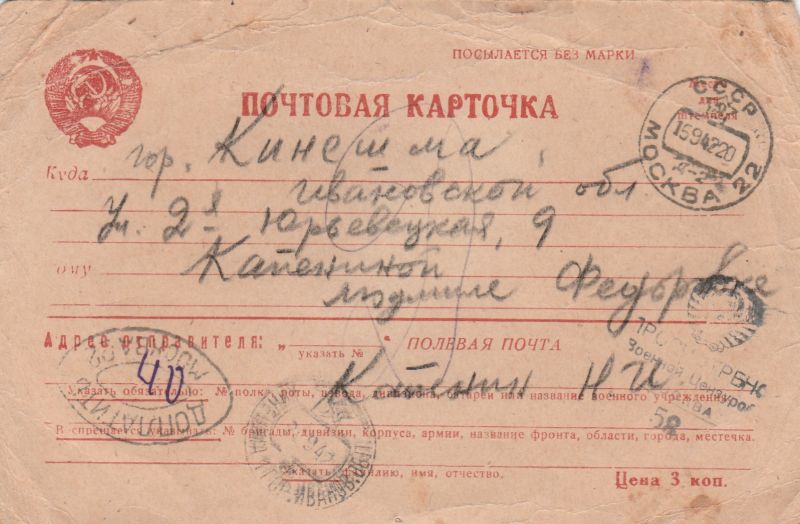 ПОСЫЛАЕТСЯ БЕЗ МАРКИ
ПОЧТОВАЯ КАРТОЧКА
штемпеля
СССР
1594220
МОСКВА 22
Куда гор. Кинешма,
Ивановской обл
Ул. 2я Юрьевецкая, 9
ому Катениной
Людмиле Федоровне
ПРОСМОТРЕНО
Военной Цензурой
58
Адрес отправителя: „ ПОЛЕВАЯ ПОЧТА
указать №
МОСКВА
ДОПЛАТИТЬ
40
Катенин Н И
Указать обязательно: № полка, роты, взвода, дивизиона, батареи или название военного учреждения
В-спрещается указывать: № бригады, дивизии, корпуса, армии, название фронта, области, города, местечка.
Указать фамилию, имя, отчество.
ИВАНОВ.
Цена 3 коп.